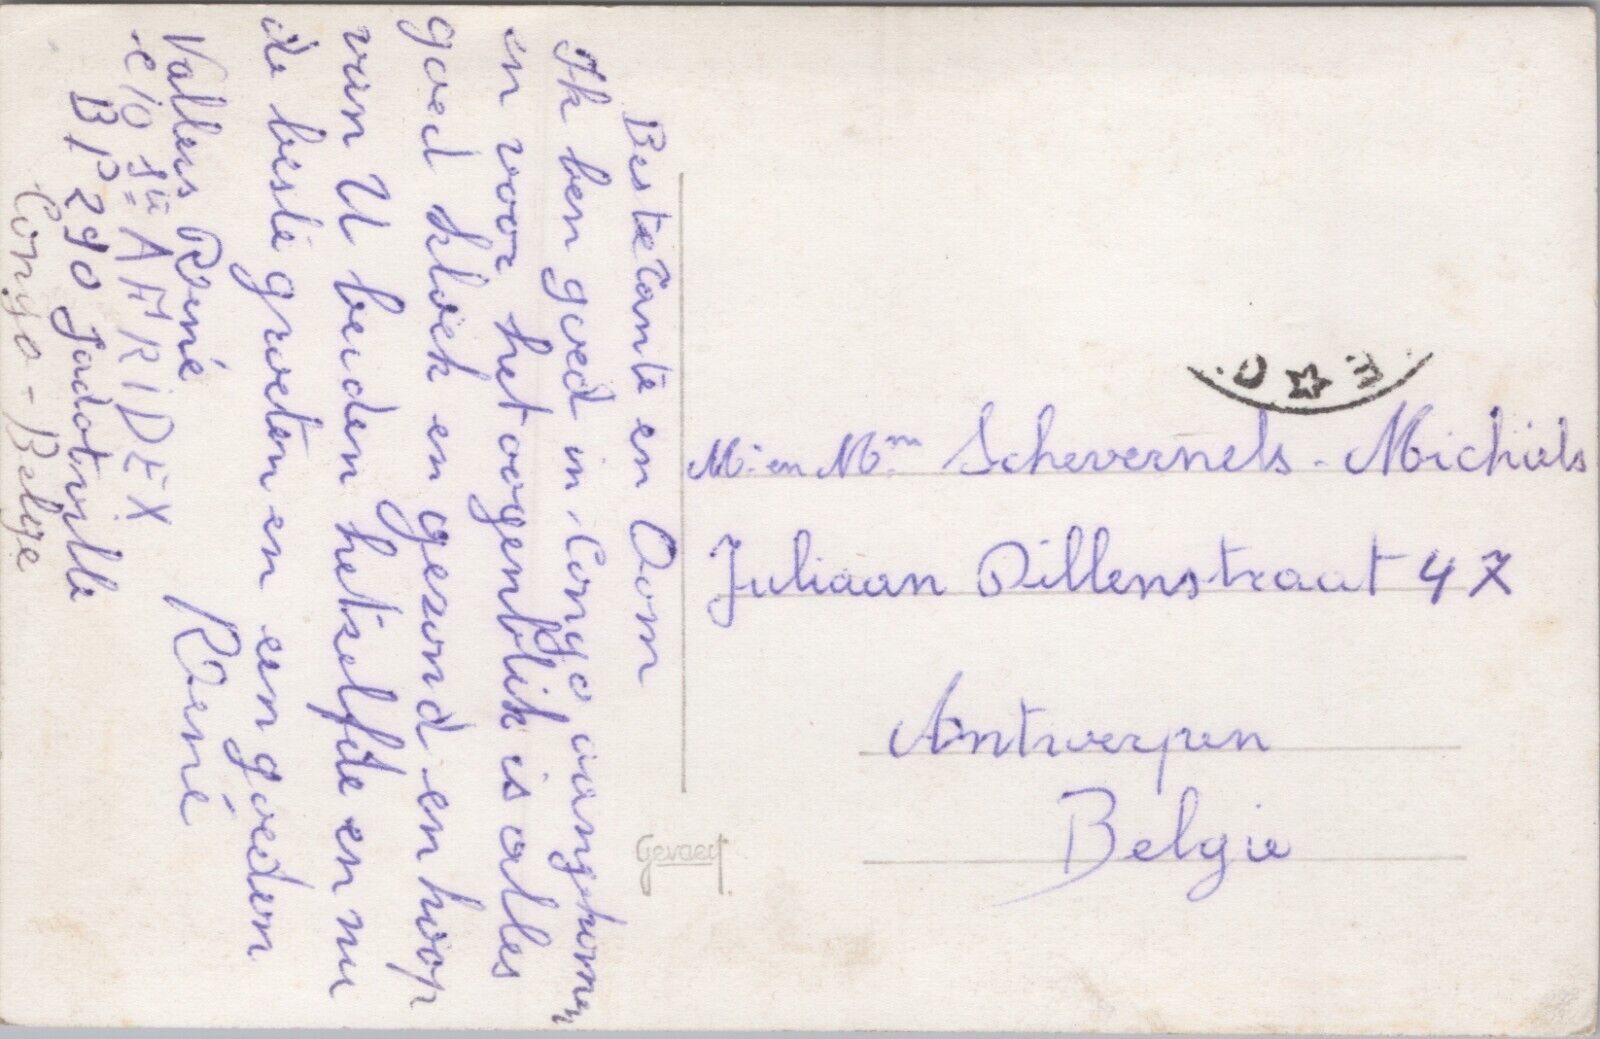 Beste Tante en Oom
Ik ben goed in Congo aangekomen
en voor het oogenblik is alles
goed kloek en gezond en hoop
van U beiden hetzelfde en nu
de beste groeten en een goeden
René
Vallers René
BP 290 Jadotville
Congo-Belge
Mr en Mme Schevernels-Michiels
Juliaan Dillenstraat 47
Antwerpen
Belgie
Gevaert